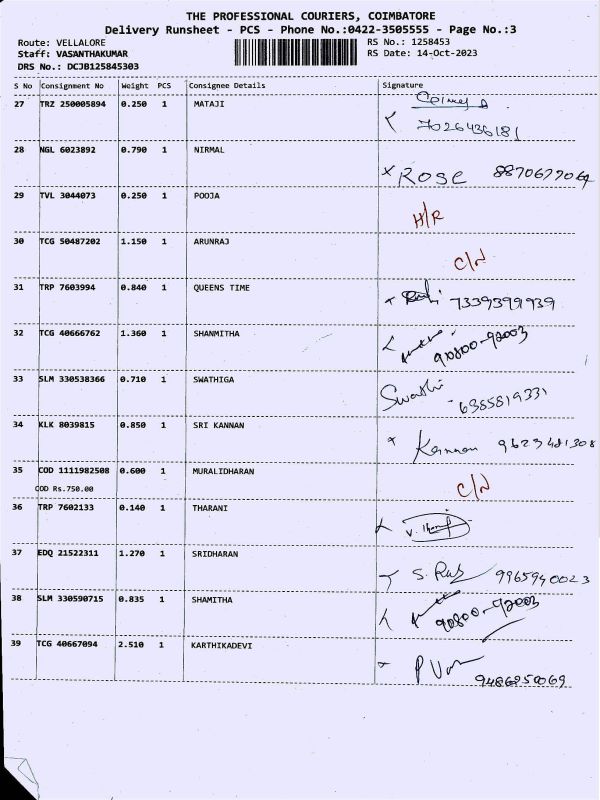 THE PROFESSIONAL COURIERS, COIMBATORE
Delivery Runsheet - PCS - Phone No.:0422-3505555 - Page No.:3
Route: VELLALORE RS No.: 1258453
Staff: VASANTHAKUMAR RS Date: 14-Oct-2023
DRS No.: DCJB125845303
S No Consignment No Weight PCS Consignee Details Signature
27 TRZ 250005894 0.250 1 MATAJI
7026436181
28 NGL 6023892 0.790 1 NIRMAL
x ROSE 8870677064
29 TVL 3044073 0.250 1 POOJA
H/R
30 TCG 50487202 1.150 1 ARUNRAJ
C/N
31 TRP 7603994 0.840 1 QUEENS TIME
7339399939
32 TCG 40666762 1.360 1 SHANMITHA
90800-92003
33 SLM 330538366 0.710 1 SWATHIGA
Swathi - 6385819331
34 KLK 8039815 0.850 1 SRI KANNAN
x Kannan 9623481308
35 COD 1111982508 0.600 1 MURALIDHARAN
COD Rs.750.00
C/N
36 TRP 7602133 0.140 1 THARANI
37 EDQ 21522311 1.270 1 SRIDHARAN
9965940023
38 SLM 330590715 0.835 1 SHAMITHA
90800-92003
39 TCG 40667094 2.510 1 KARTHIKADEVI
9486250069